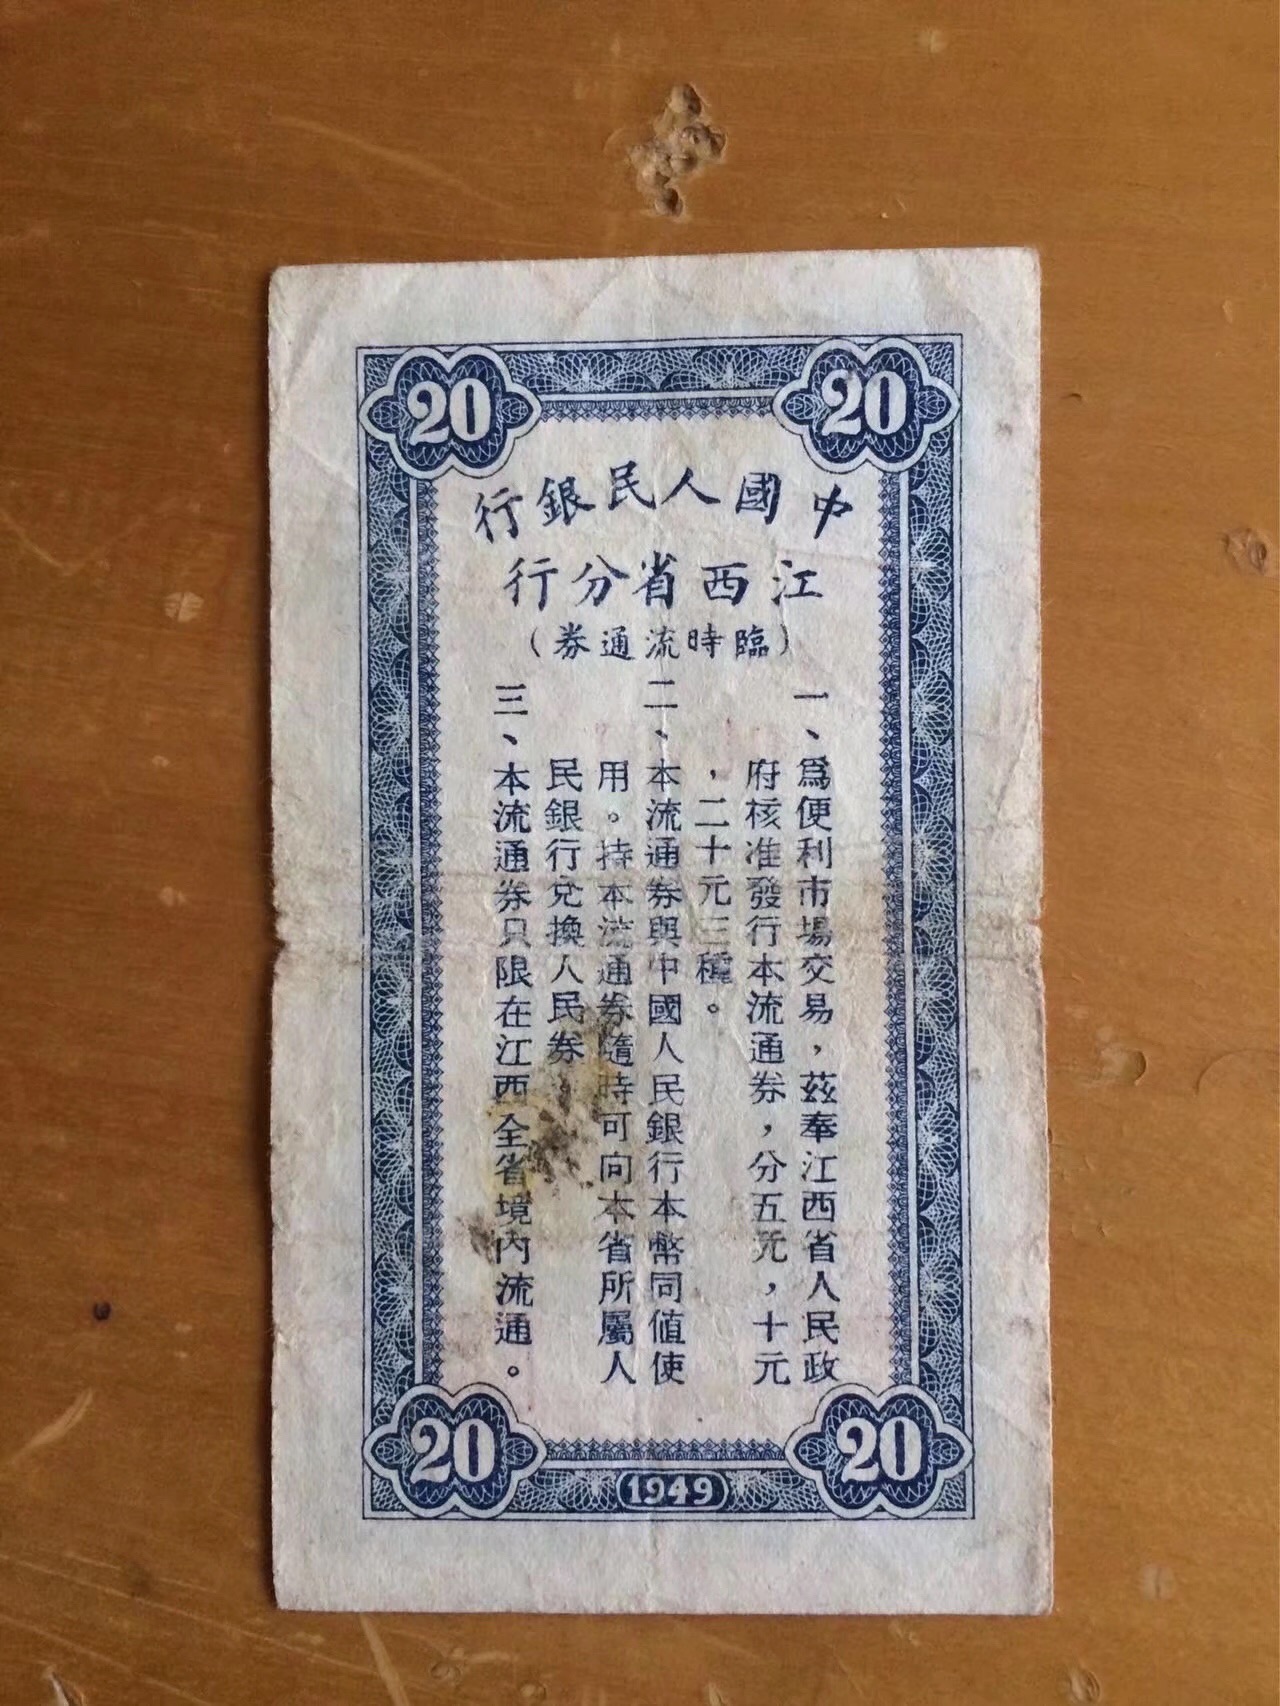 20
20
中國人民銀行
江西省分行
（臨時流通券）
一、爲便利市場交易，茲奉江西省人民政
府核准發行本流通券，分五元，十元
，二十元三種。
二、本流通券與中國人民銀行本幣同值使
用。持本流通券隨時可向本省所屬人
民銀行兌換人民券。
三、本流通券只限在江西全省境內流通。
20
1949
20